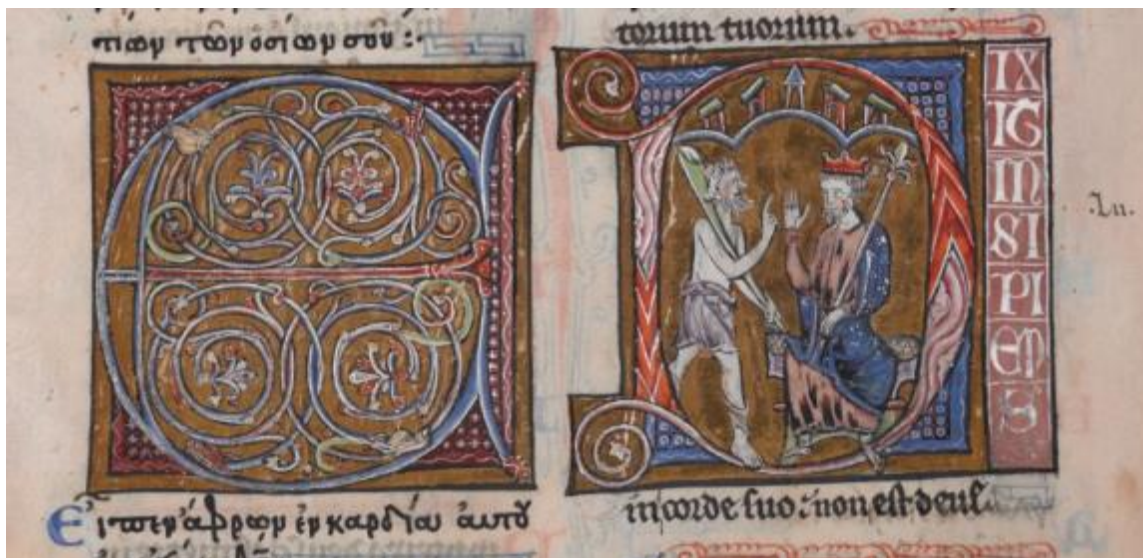 τιων τῶν ὁσίων σοῦ :
Ε
Εἶπεν ἄφρων ἐν καρδίαι αὐτοῦ
torum tuorum.
D
IX
IT
IN
SI
PI
EN
S
in corde suo: non est deus